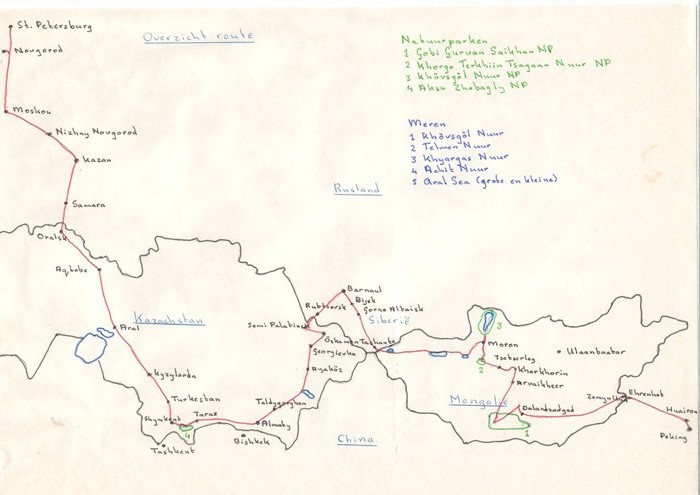 St. Petersburg
Overzicht route
Novgorod
Moskou
Nizhny Novgorod
Kazan
Samara
Oralsk
Aqtobe
Natuurparken
1 Gobi Gurvan Saikhan NP
2 Khorgo Terkhiin Tsagaan Nuur NP
3 Khövsgöl Nuur NP
4 Aksu Zhabagly NP
Meren
1 Khövsgöl Nuur
2 Telmen Nuur
3 Khyargas Nuur
4 Achit Nuur
5 Aral Sea (grote en kleine)
Rusland
Barnaul
Bijsk
Rubtsovsk
Gorno Altaisk
Siberië
Semi Palatinsk
Kazachstan
Aral
Öskemen
Tashanta
Georgievka
Ayaköz
Kyzylorda
Turkestan
Taldyqorghan
Shymkent
Taraz
4
Almaty
Bishkek
Tashkent
China
3
Moron
2
Tsetserleg
Ulaanbaatar
Kharkhorin
Arvaikheer
Mongolië
Dalandzadgad
1
Zamyn
Erenhot
Huairou
Peking